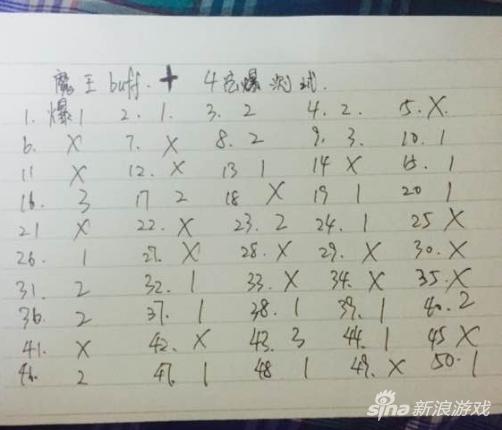 魔王buff. + 4宠爆测试.
1. 爆1 2. 1. 3. 2 4. 2. 5. X.
6. X 7. X 8. 2 9. 3. 10. 1
11 X 12. X 13 1 14 X 15. 1
16. 3 17 2 18 X 19 1 20 1
21 X 22. X 23. 2 24. 1 25 X
26. 1 27. X 28. X 29. X 30. X
31. 2 32. 1 33. X 34. X 35. X
36. 2 37. 1 38. 1 39. 1 40. 2
41. X 42. X 43. 3 44. 1 45 X
46. 2 47. 1 48 1 49. X 50. 1
sina新浪游戏